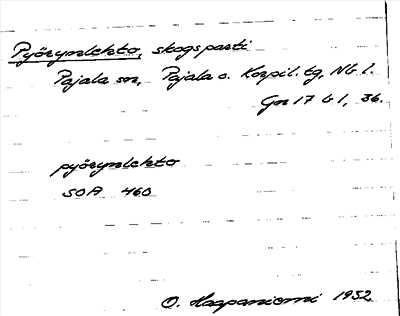 Pyörynlehto, skogsparti
Pajala sn, Pajala o. Korpil. tg, Nb l.
Gn 17 b 1, 36.
pyörynlehto
SOA 460
O. Haapaniemi 1952